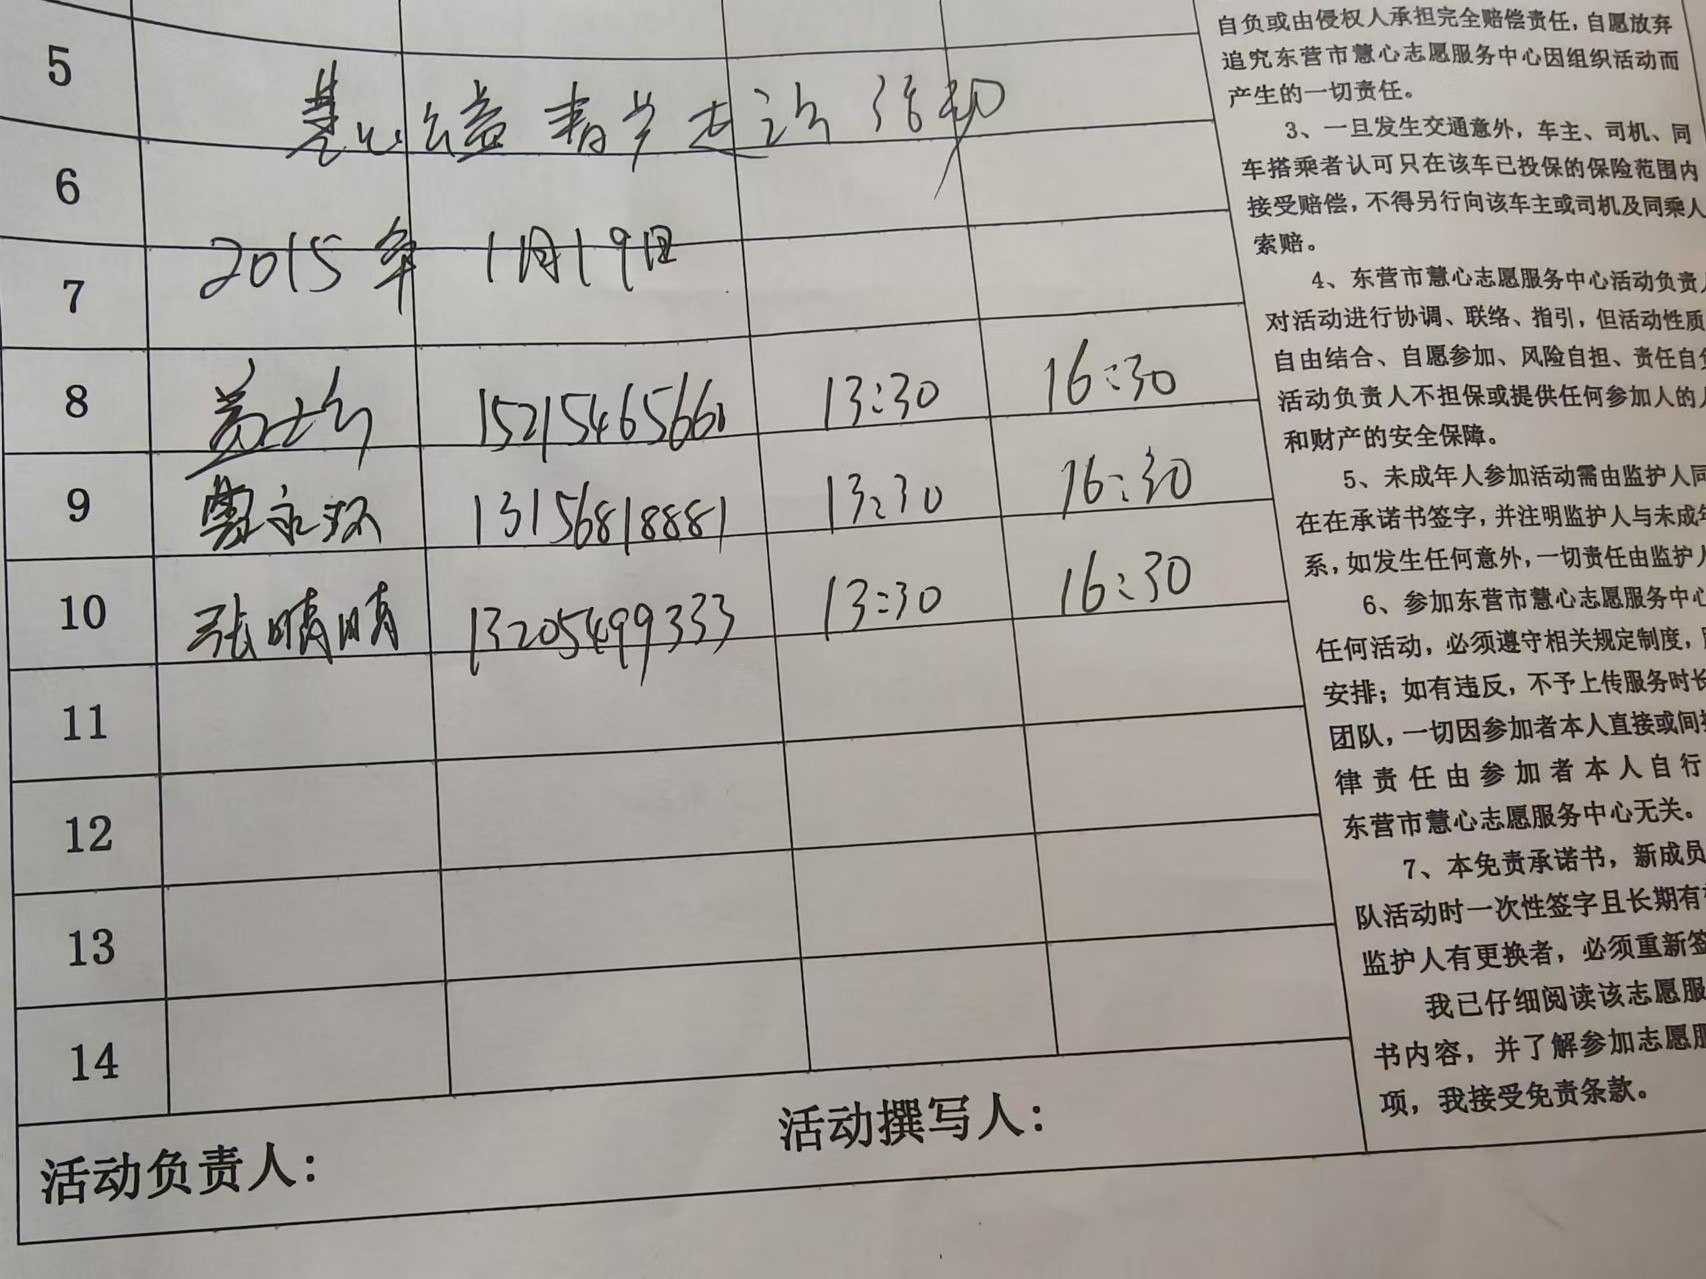 5
公益青少走访活动
6
7
2015年 1月19日
8 15215465660 13:30 16:30
9 曹永环 13156818881 13:30 16:30
10 张晴晴 13205499333 13:30 16:30
11
12
13
14
活动负责人：
活动撰写人：
自负或由侵权人承担完全赔偿责任，自愿放弃
追究东营市慧心志愿服务中心因组织活动而
产生的一切责任。
3、一旦发生交通意外，车主、司机、同
车搭乘者认可只在该车已投保的保险范围内
接受赔偿，不得另行向该车主或司机及同乘人
索赔。
4、东营市慧心志愿服务中心活动负责人
对活动进行协调、联络、指引，但活动性质
自由结合、自愿参加、风险自担、责任自负
活动负责人不担保或提供任何参加人的人
和财产的安全保障。
5、未成年人参加活动需由监护人同
在在承诺书签字，并注明监护人与未成年
系，如发生任何意外，一切责任由监护人
6、参加东营市慧心志愿服务中心
任何活动，必须遵守相关规定制度，
安排；如有违反，不予上传服务时长
团队，一切因参加者本人直接或间接
律责任由参加者本人自行
东营市慧心志愿服务中心无关。
7、本免责承诺书，新成员
队活动时一次性签字且长期有效
监护人有更换者，必须重新签
我已仔细阅读该志愿服
书内容，并了解参加志愿服
项，我接受免责条款。